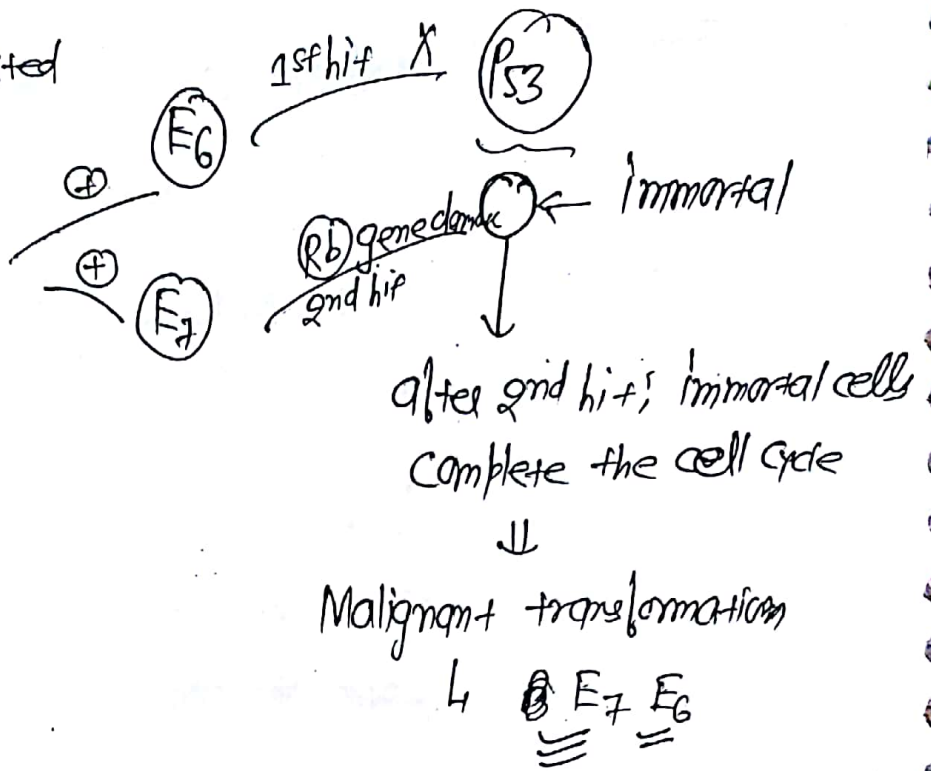 ted
1st hit X
P53
E6
+
immortal
Rb gene damage
+
2nd hit
E7
after 2nd hit; immortal cells
complete the cell cycle
⇓
Malignant transformation
↳ E7 E6